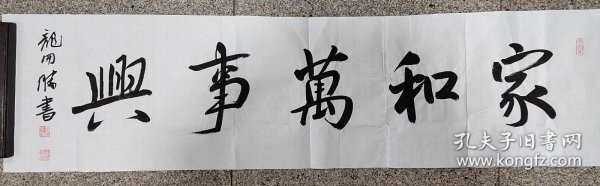 家和萬事興
龍開勝書
孔夫子旧书网
www.kongfz.com